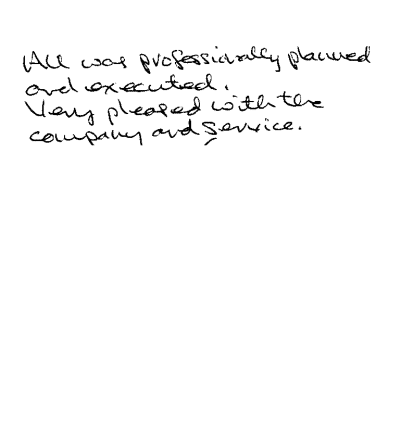 All was professionally planned
and executed.
Very pleased with the
company and service.